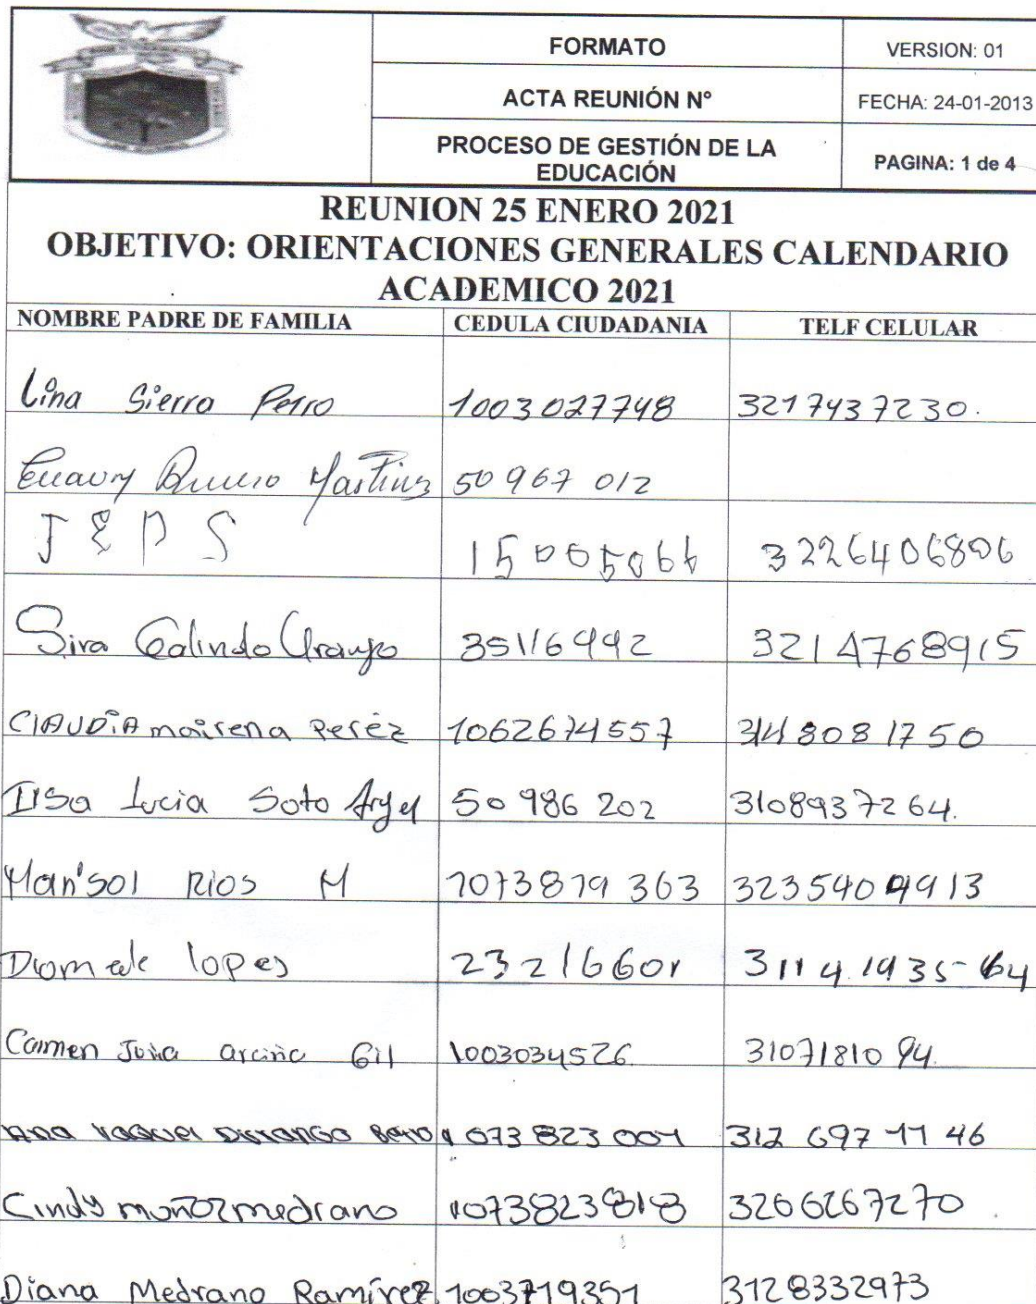 FORMATO VERSION: 01
ACTA REUNIÓN Nº FECHA: 24-01-2013
PROCESO DE GESTIÓN DE LA
EDUCACIÓN PAGINA: 1 de 4
REUNION 25 ENERO 2021
OBJETIVO: ORIENTACIONES GENERALES CALENDARIO
ACADEMICO 2021
NOMBRE PADRE DE FAMILIA CEDULA CIUDADANIA TELF CELULAR
Lina Sierra Petro 1003027748 3217437230.
50967 012
J E D S 15005066 3226406806
Sira Galindo Araujo 35116992 3214768915
ClAUDiA mairena Peréz 1062674557 3148081750
Lucia Soto 50 986 202 3108937264.
Marisol Rios M 1073819 363
lopes 23216601 311 4 1935-64
Carmen Gil 1003034526 3107181094.
Ana raquel 1 073 823 001 312 697 11 46
Cindy muñoz medrano 1073823818 3206267270
Diana Medrano Ramírez 1003719351 3128332973